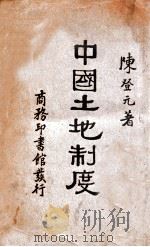 陳登元著
中國土地制度
商務印書館發行